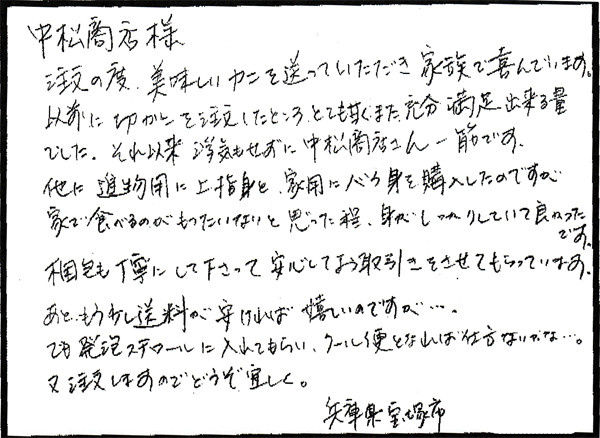 中松商店様
注文の度、美味しいカニを送っていただき家族で喜んでいます。
以前に切がにを注文したところ、とても甘く、また充分満足出来る量
でした。それ以来浮気もせずに中松商店さん一筋です。
他に進物用に上指身と、家用にバラ身を購入したのですが
家で食べるのがもったいないと思った程、身がしっかりしていて良かった
です。
梱包も丁寧にして下さって安心してお取引きをさせてもらっています。
あと、もう少し送料が安ければ嬉しいのですが…。
でも発泡スチロールに入れてもらい、クール便となれば仕方ないかな…。
又注文しますのでどうぞ宜しく。
兵庫県宝塚市